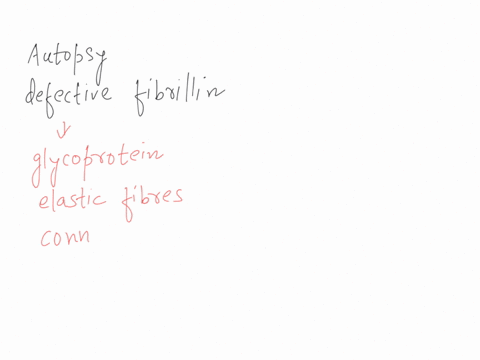 Autopsy
defective fibrillin
↓
glycoprotein
elastic fibres
conn